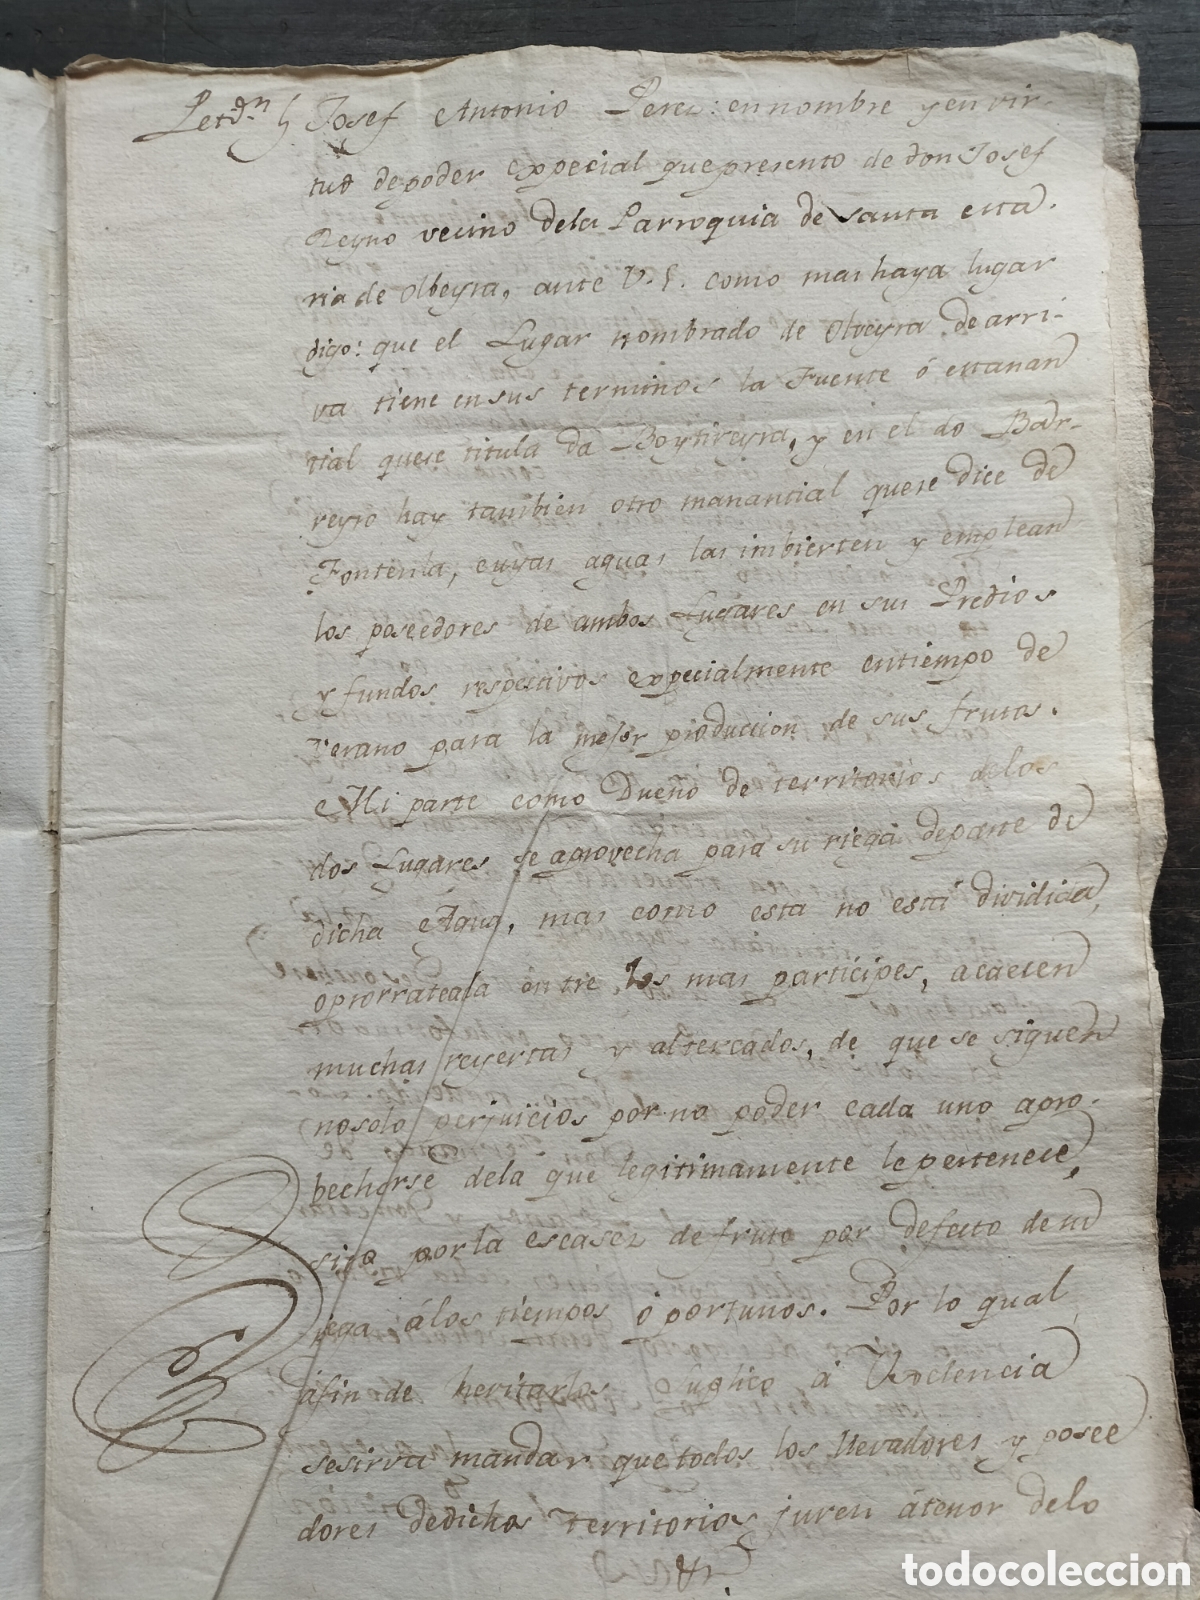 Petn. Josef Antonio Perez: en nombre y en vir-
tud de poder expecial que presento de don Josef
Reyno vecino dela Parroquia de Santa Ma-
ria de Olbeyra, ante V.E. como mas haya lugar
digo: que el Lugar nombrado de Olveyra de arri-
va tiene en sus terminos la Fuente ó manan
tial que se titula da Boytireyra, y en el do Bar-
reyro hay tambien otro manantial que se dice de
Fontenla, cuyas aguas las imbierten y emplean
los poseedores de ambos Lugares en sus Predios
y fundos respectivos expecialmente en tiempo de
Verano para la mejor produccion de sus frutos.
Mi parte como Dueño de territorios de los
dos Lugares se aprovecha para su riega de parte de
dicha Agua, mas como esta no está dividida,
o prorrateada entre los mas participes, acaecen
muchas reyertas y altercados, de que se siguen
no solo perjuicios por no poder cada uno apro-
becharse dela que legitimamente le pertenece,
sino por la escasez de fruto por defecto de
riega á los tiempos oportunos. Por lo qual
á fin de hevitarlos Suplico á Vexelencia
se sirva mandar que todos los llevadores y posee
dores de dichos territorios juren á tenor de lo
todocoleccion